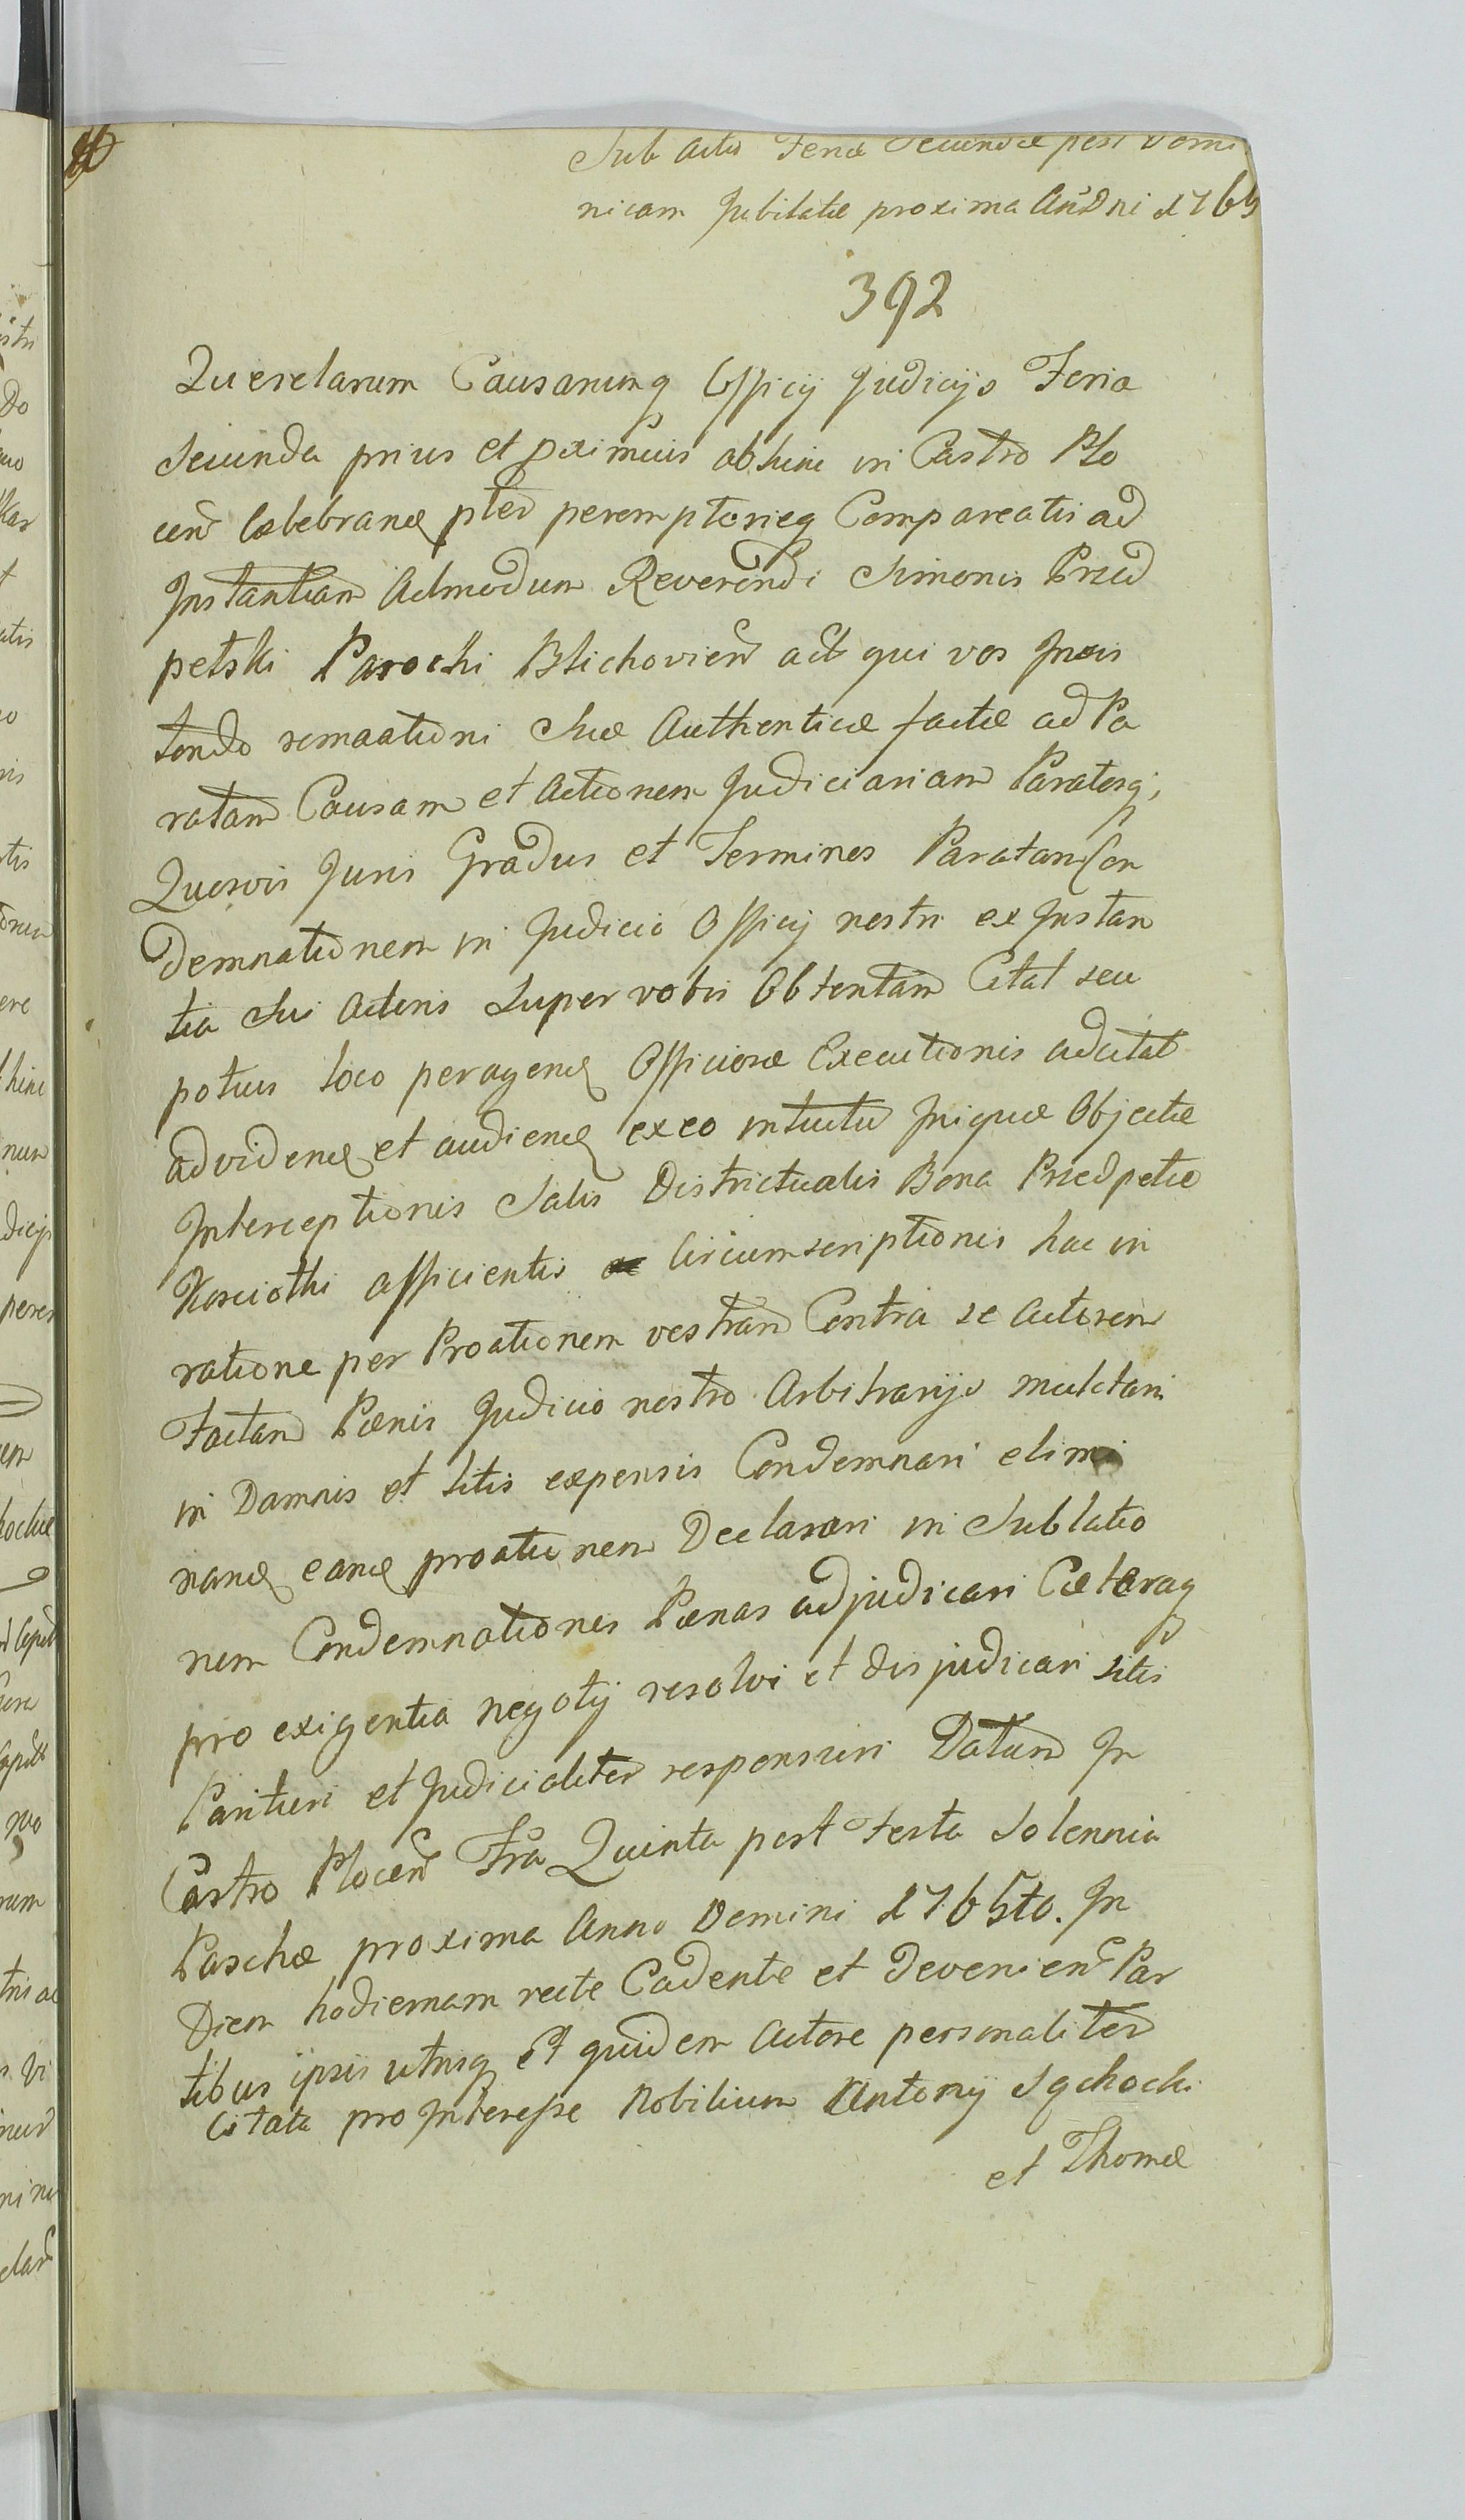 Sub Actu Feria Secunda post Domi
nicam Jubilatæ proxima An Dni 1765
392
Querelarum Causarumq Officij Judicijs Feria
Secunda prius et proximius abhinc in Castro Plo
cen Cælebrand pter peremptorieq Compareatis ad
Instantiam Admodum Reverendi Simonis Przed
petski Parochi Blichovien act qui vos
remaationi Suæ Authenticæ factæ ad Pa
ratam Causam et Actionem Judiciariam Paratosq,
Quosvis Juris Gradus et Terminos Paratam Con
demnationem in Judicio Officij nostri ex Instan
tia Sui Actoris Super vobis Obtentam Citat seu
potius loco peragend Officiosæ Executionis adcitat
advidend et audiend ex eo intuitu Iniquæ Objectæ
Interceptionis Salis Districtualis Bona Przedpetie
Kosciołki afficientis Circumscriptionis hac in
ratione per Proationem vestram Contra se Actorem
Factam Pænis Judicio nostro Arbitrarijs mulctari
in Damnis et litis expensis Condemnari elimi
nand eand proationem Declarari in Sublatio
nem Condemnationis Pænas adjudicari Cæteraq
pro exigentia negotij resolvi et disjudicari sitis
Parituri et Judicialiter responsuri Datum In
Castro Plocen Fra Quinta post Festa Solennia
Paschæ proxima Anno Domini 1765to. In
Diem hodiernam recte Cadente et devenien Par
tibus ipsis utrisq Et quidem Actore personaliter
Citata pro Interesse Nobilium Antonij Sochocki
et Thomæ